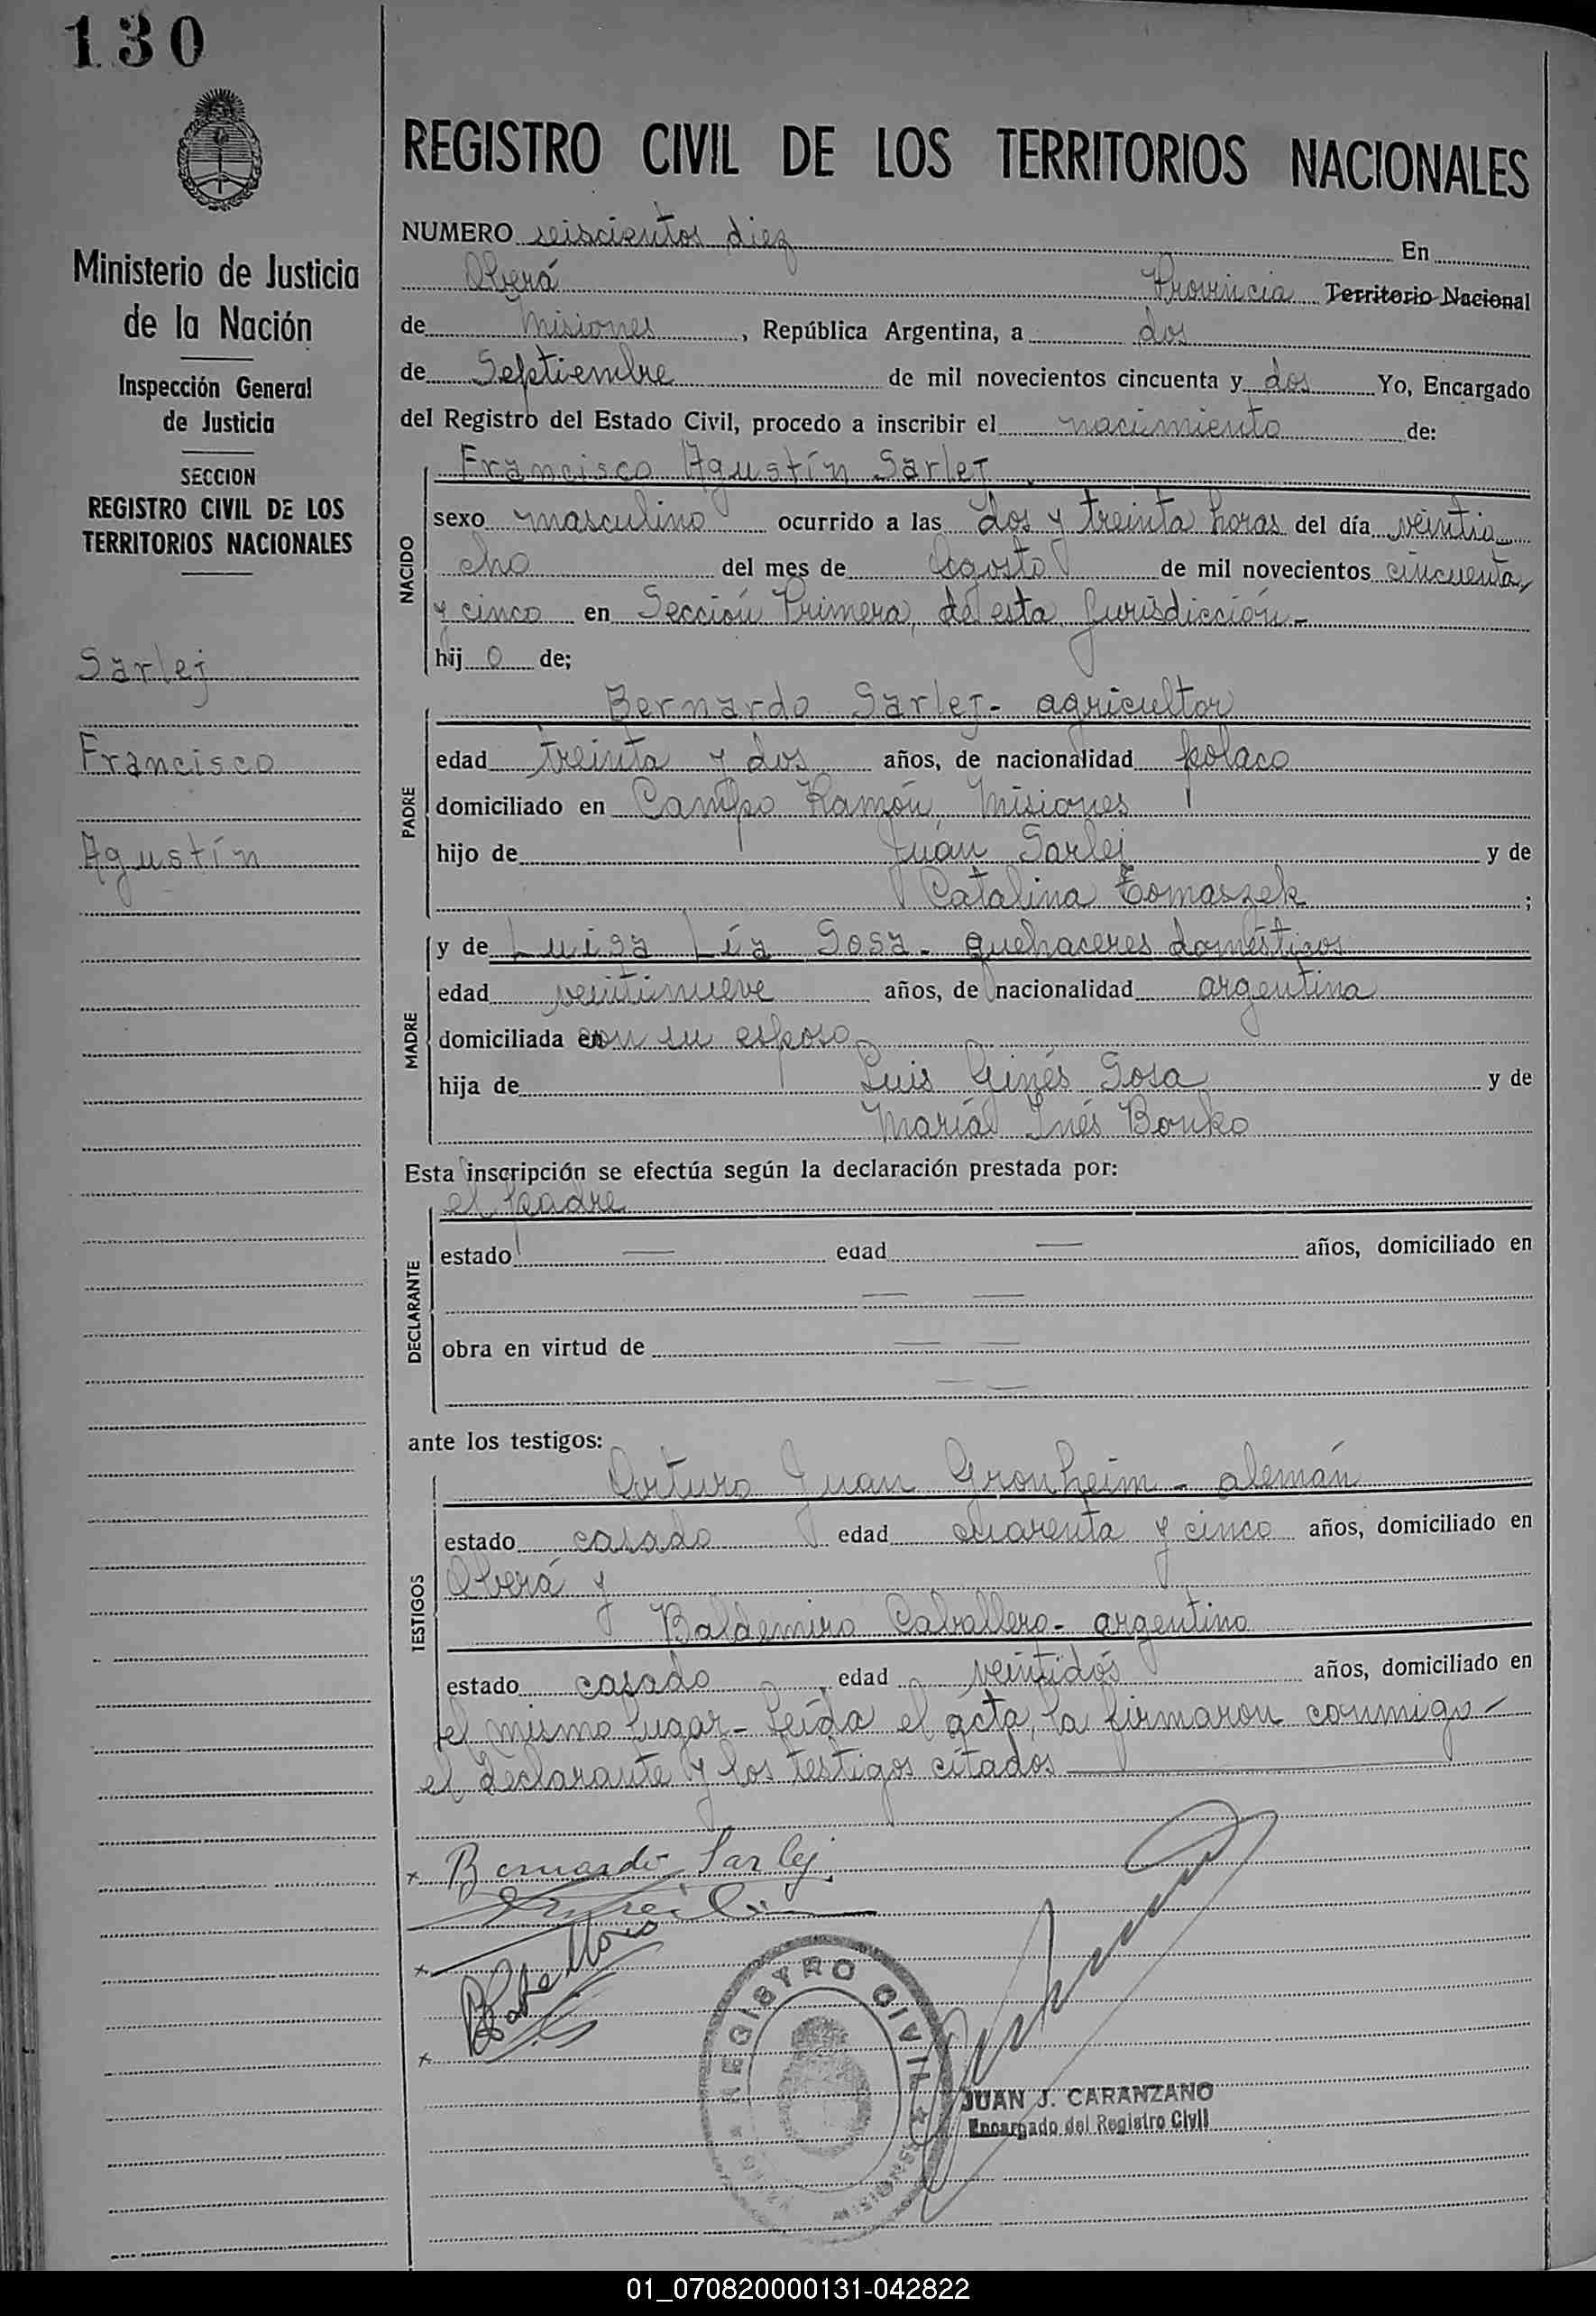 130
Ministerio de Justicia
de la Nación
Inspección General
de Justicia
SECCION
REGISTRO CIVIL DE LOS
TERRITORIOS NACIONALES
Sarlej
Francisco
Agustín
REGISTRO CIVIL DE LOS TERRITORIOS NACIONALES
NUMERO seiscientos diez En
Oberá Provincia Territorio Nacional
de Misiones, República Argentina, a dos
de Septiembre de mil novecientos cincuenta y dos Yo, Encargado
del Registro del Estado Civil, procedo a inscribir el nacimiento de:
NACIDO
Francisco Agustín Sarlej
sexo masculino ocurrido a las dos y treinta horas del día veintio
cho del mes de Agosto de mil novecientos cincuenta
y cinco en Sección Primera, de esta Jurisdicción.-
hij o de;
PADRE
Bernardo Sarlej - agricultor
edad treinta y dos años, de nacionalidad polaco
domiciliado en Campo Ramón, Misiones
hijo de Juan Sarlej y de
Catalina Tomaszek ;
MADRE
y de Luisa Lía Sosa - quehaceres domésticos
edad veintinueve años, de nacionalidad argentina
domiciliada en con su esposo
hija de Luis Ginés Sosa y de
María Inés Bonko
Esta inscripción se efectúa según la declaración prestada por:
DECLARANTE
el padre
estado — edad — años, domiciliado en
— —
obra en virtud de — —
— —
ante los testigos:
TESTIGOS
Arturo Juan Gronheim - alemán
estado casado edad cuarenta y cinco años, domiciliado en
Oberá y
Baldemiro Caballero - argentino
estado casado, edad veintidós años, domiciliado en
el mismo lugar - Leída el acta, la firmaron conmigo -
el declarante y los testigos citados
x Bernardo Sarlej
x
x
REGISTRO CIVIL
MISIONES
JUAN J. CARANZANO
Encargado del Registro Civil
01_070820000131-042822